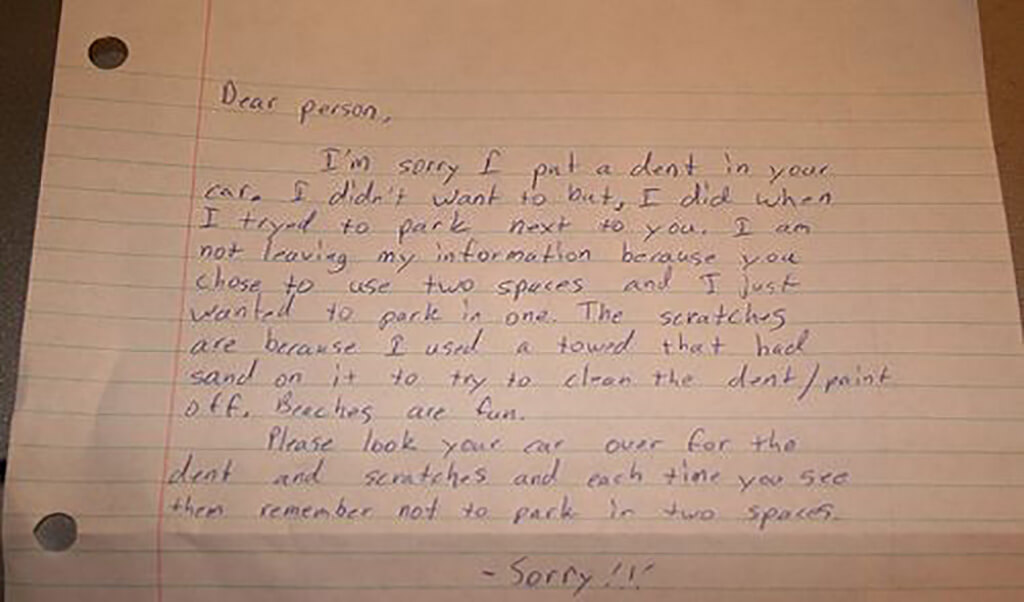 Dear person,
I'm sorry I put a dent in your
car. I didn't want to but, I did when
I tryed to park next to you. I am
not leaving my information because you
chose to use two spaces and I just
wanted to park in one. The scratches
are because I used a towel that had
sand on it to try to clean the dent/paint
off. Beaches are fun.
Please look your car over for the
dent and scratches and each time you see
them remember not to park in two spaces.
- Sorry!!!